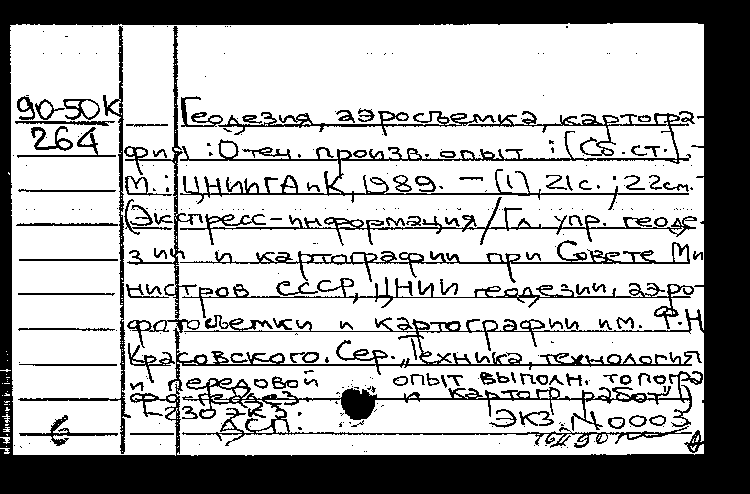 90-50К
264
Геодезия, аэросъемка, картогра-
фия : Отеч. произв. опыт : [Сб. ст.]. -
М. : ЦНИИГАиК, 1989. - [1], 21 с. ; 22 см. -
(Экспресс-информация / Гл. упр. геоде-
зии и картографии при Совете Ми
нистров СССР, ЦНИИ геодезии, аэро-
фотосъемки и картографии им. Ф.Н
Красовского. Сер. „Техника, технология
и передовой опыт выполн. топогра
ф.-геодез. и картогр. работ").
- 230 экз.
ДСП. ЭКЗ. N 0003
6